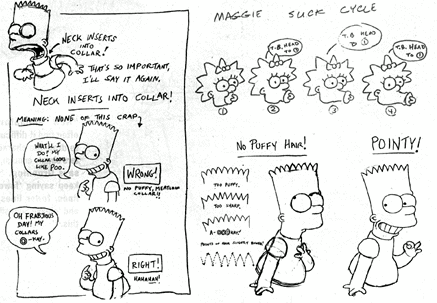 NECK INSERTS
INTO
COLLAR!
THAT'S SO IMPORTANT,
I'LL SAY IT AGAIN.
NECK INSERTS INTO COLLAR!
MEANING: NONE OF THIS CRAP.
WHAT'LL I
DO! MY
COLLAR LOOKS
LIKE POO.
WRONG!
NO PUFFY, MEATLOAF
COLLAR!!
OH FRABJOUS
DAY! MY
COLLARS
O-KAY.
RIGHT!
HAHAHAH!
MAGGIE SUCK CYCLE
T.B. HEAD
TO ①
T.B. HEAD
TO
T.B. HEAD
TO ①
T.B. HEAD
TO
①
②
③
④
NO PUFFY HAIR!
TOO PUFFY.
TOO SHARP.
A-OKAY!
POINTS OF HAIR SLIGHTLY ROUNDED!
POINTY!